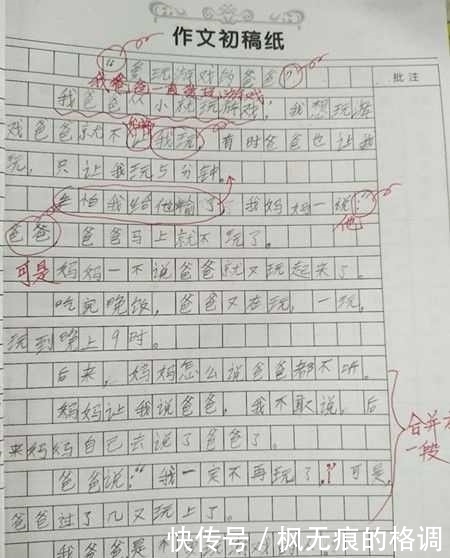 作文初稿纸
批注
“爱玩游戏的爸爸”
我爸爸一直爱玩游戏
我爸爸从小就玩游戏,我想玩游
戏爸爸就不让我玩,有时爸爸也让我
玩,只让我玩5分钟。
怕我给他输了,我妈妈一说:
他
爸爸,爸爸马上就不玩了。
可是妈妈一不说爸爸就又玩起来了。
吃完晚饭,爸爸又在玩,一玩,
玩到晚上9时。
后来,妈妈怎么说爸爸都不听。
妈妈让我说爸爸,我不敢说,后
来妈妈自己去说了爸爸了。
合并为
一段
爸爸说:“我一定不再玩了。”可是
爸爸过了几又玩上了。
我爸爸是
快传号/枫无痕的格调